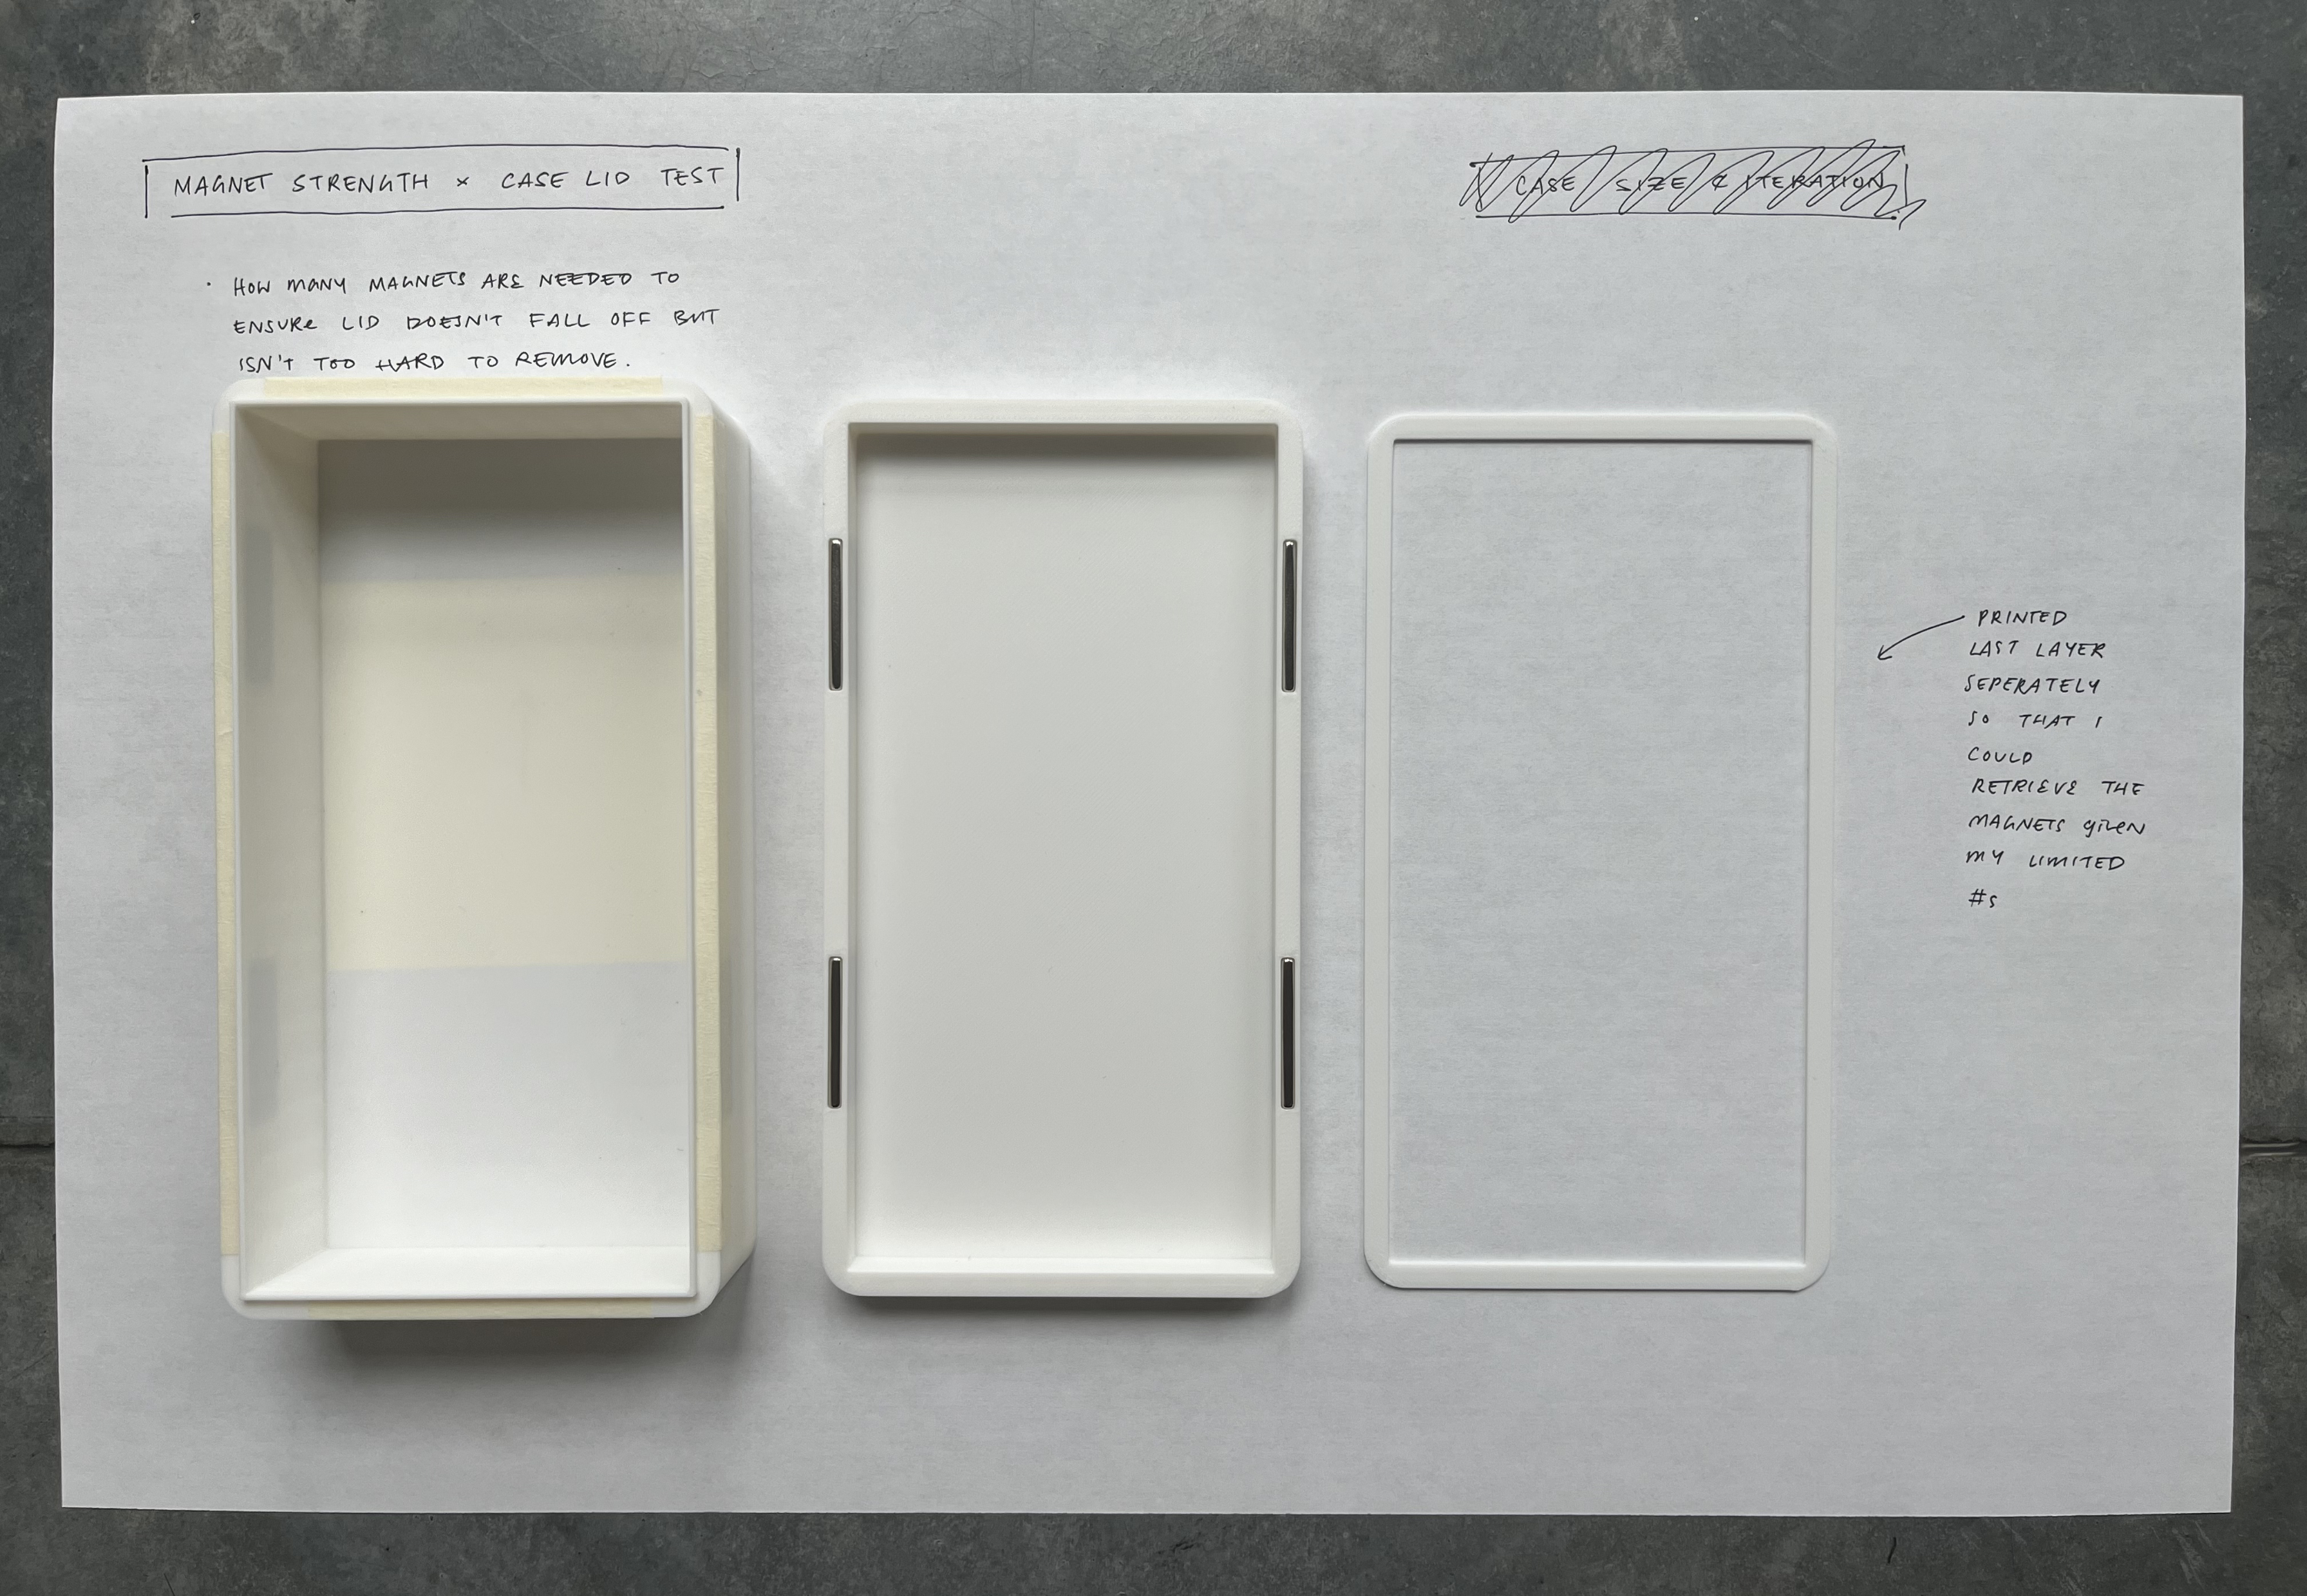 MAGNET STRENGTH × CASE LID TEST
CASE SIZE & ITERATION
· HOW MANY MAGNETS ARE NEEDED TO
ENSURE LID DOESN'T FALL OFF BUT
ISN'T TOO HARD TO REMOVE.
PRINTED
LAST LAYER
SEPERATELY
SO THAT I
COULD
RETRIEVE THE
MAGNETS GIVEN
MY LIMITED
#s